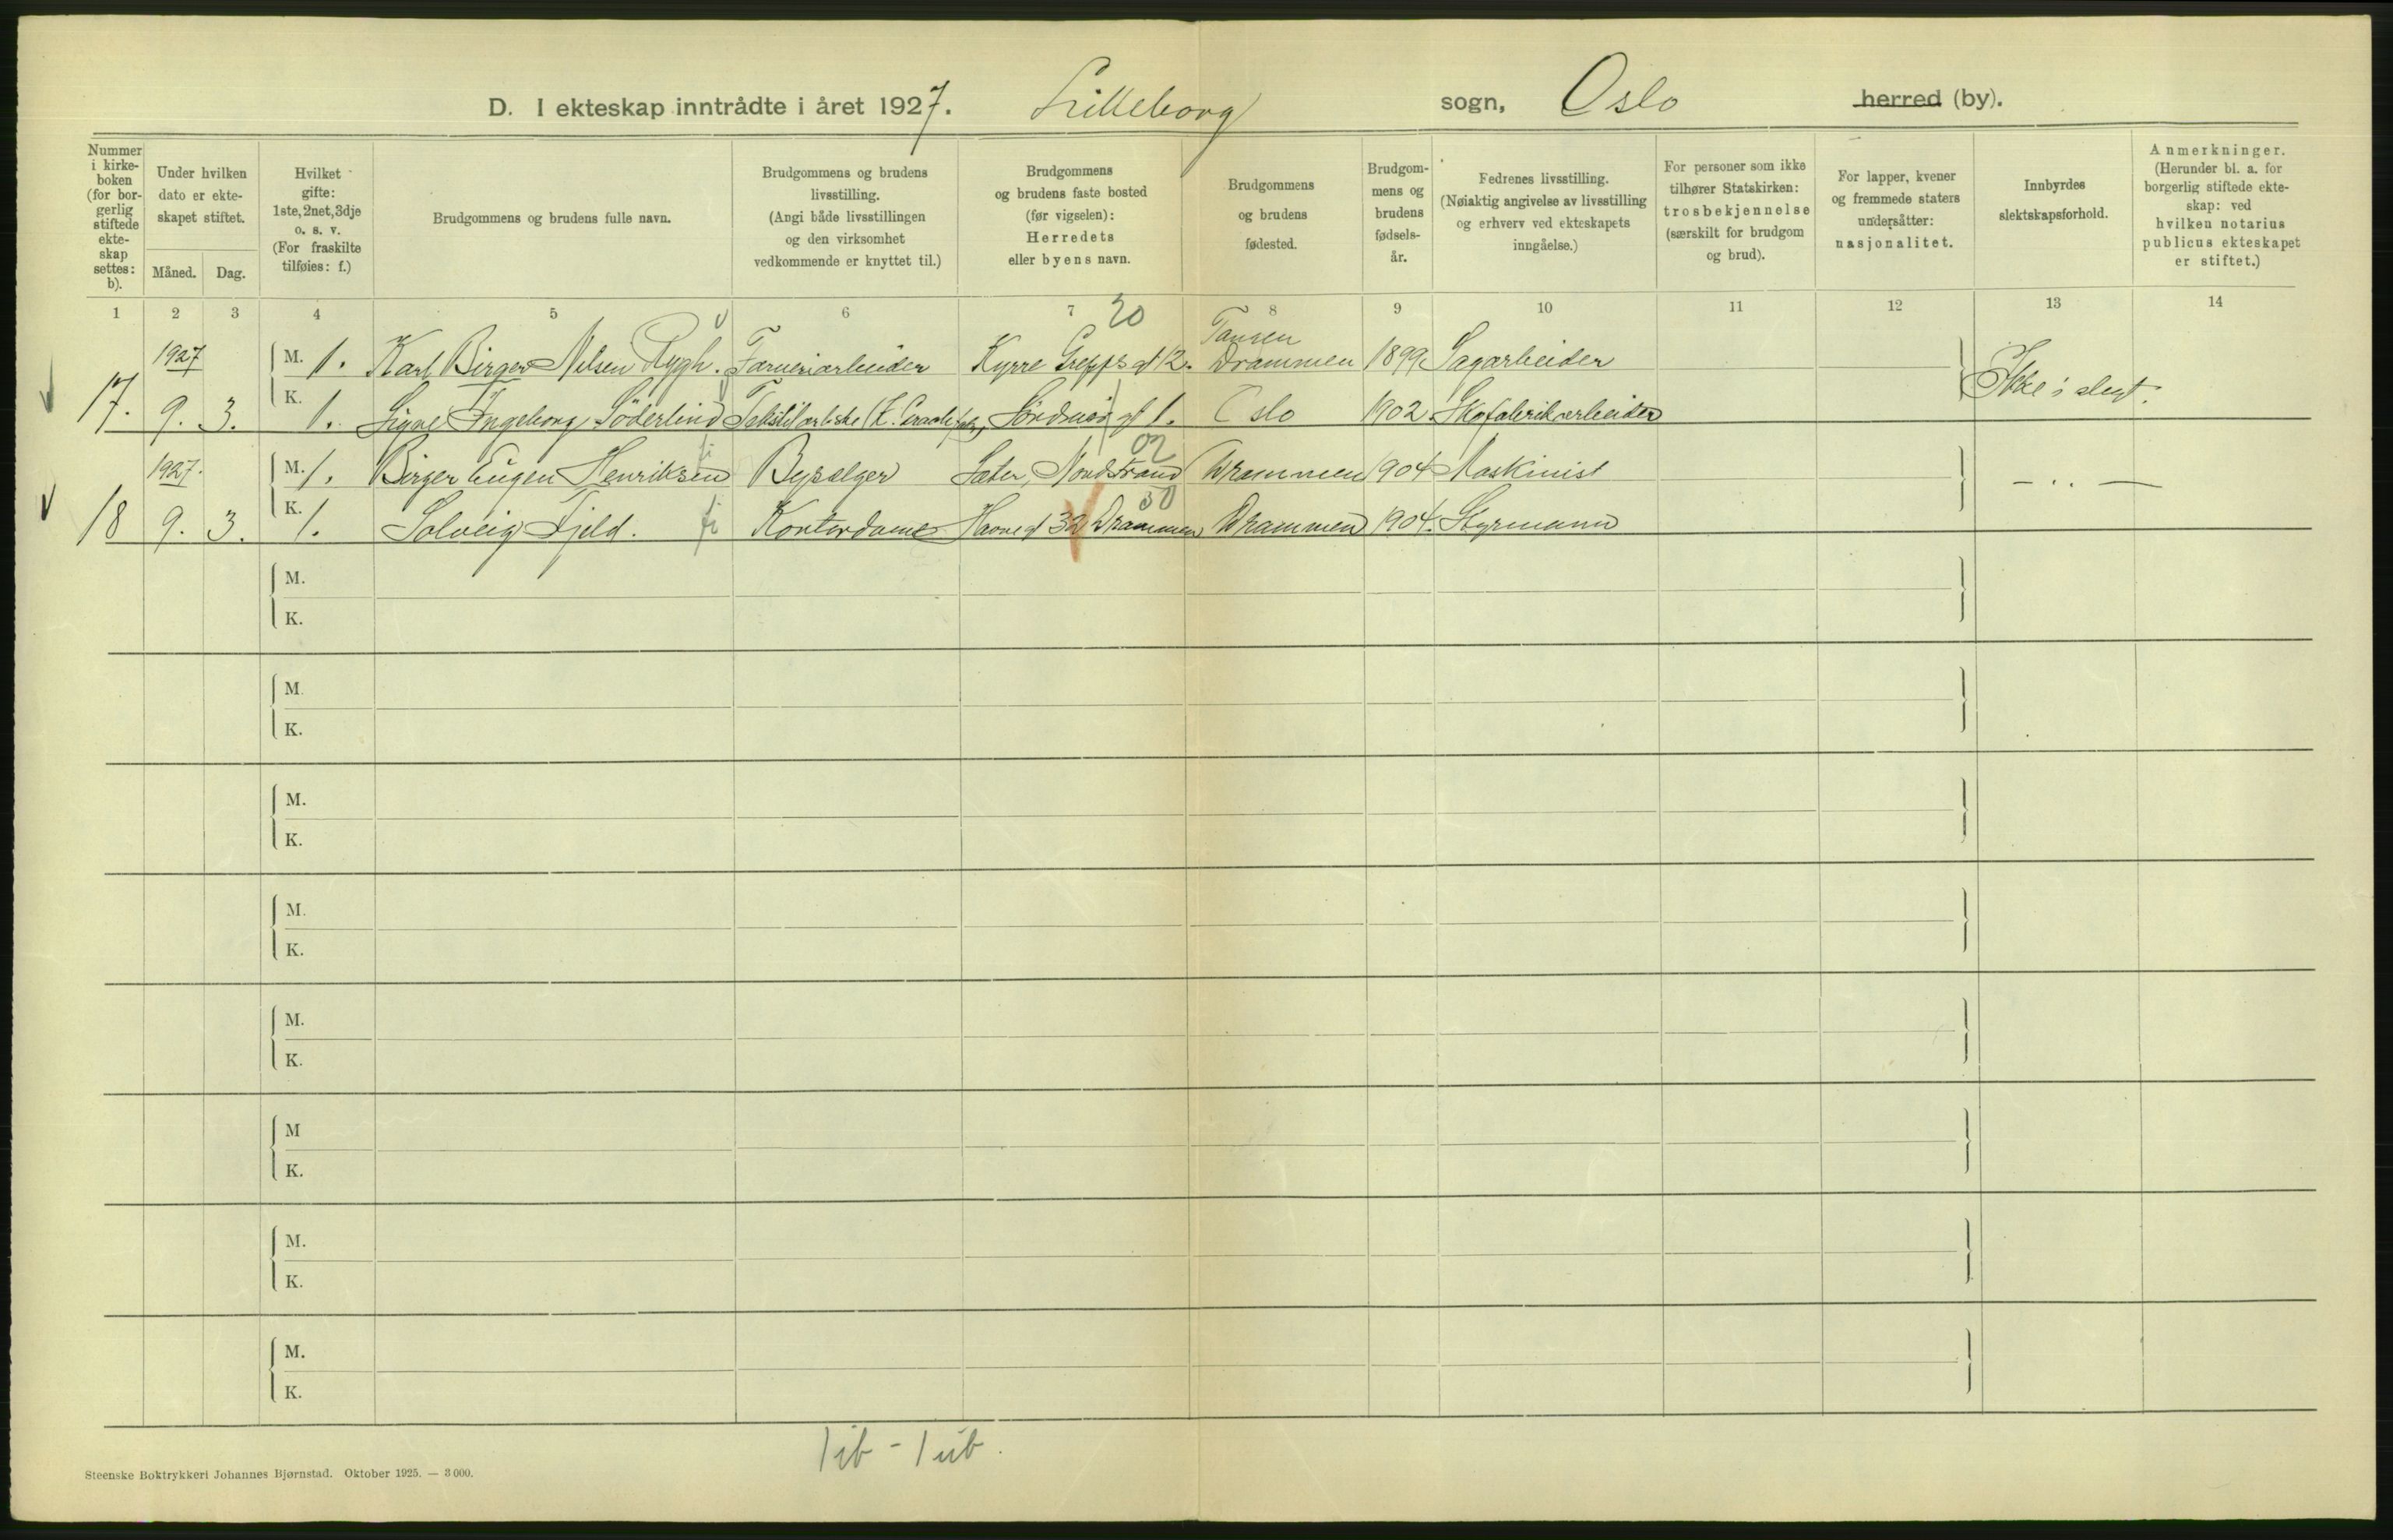 D. I ekteskap inntrådte i året 1927. Lilleborg sogn, Oslo herred (by).
Nummer i kirke- boken (for bor- gerlig stiftede ekte- skap settes: b).
Under hvilken dato er ekte- skapet stiftet.
Måned. Dag.
Hvilket gifte: 1ste, 2net, 3dje o. s. v. (For fraskilte tilføies: f.)
Brudgommens og brudens fulle navn.
Brudgommens og brudens livsstilling. (Angi både livsstillingen og den virksomhet vedkommende er knyttet til.)
Brudgommens og brudens faste bosted (før vigselen): Herredets eller byens navn.
Brudgommens og brudens fødested.
Brudgom- mens og brudens fødsels- år.
Fedrenes livsstilling. (Nøiaktig angivelse av livsstilling og erhverv ved ekteskapets inngåelse.)
For personer som ikke tilhører Statskirken: trosbekjennelse (særskilt for brudgom og brud).
For lapper, kvener og fremmede staters undersåtter: nasjonalitet.
Innbyrdes slektskapsforhold.
Anmerkninger. (Herunder bl. a. for borgerlig stiftede ekte- skap: ved hvilken notarius publicus ekteskapet er stiftet.)
1 2 3 4 5 6 7 8 9 10 11 12 13 14
20
1927 M. 1. Karl Birger Nilsen Rygh. Farveriarbeider Kyrre Grepps gt 12. Drammen 1899 Sagarbeider
Ikke i slegt.
17. 9. 3. K. 1. Signe Ingeborg Söderlind gt 1. Oslo 1902. Skofabrikarbeider
02
1927. M. 1. Birger Eugen Henriksen Bysælger Sæter, Nordstrand Drammen 1904 Maskinist
- .. -
50
18 9. 3. K. 1. Solveig Fjeld. Kontordame Havnegt 32 Drammen Drammen 1904. Styrmann
M.
K.
M.
K.
M.
K.
M.
K.
M.
K.
M
K.
M.
K.
M.
K.
1 ib - 1 ub.
Steenske Boktrykkeri Johannes Bjørnstad. Oktober 1925. — 3 000.